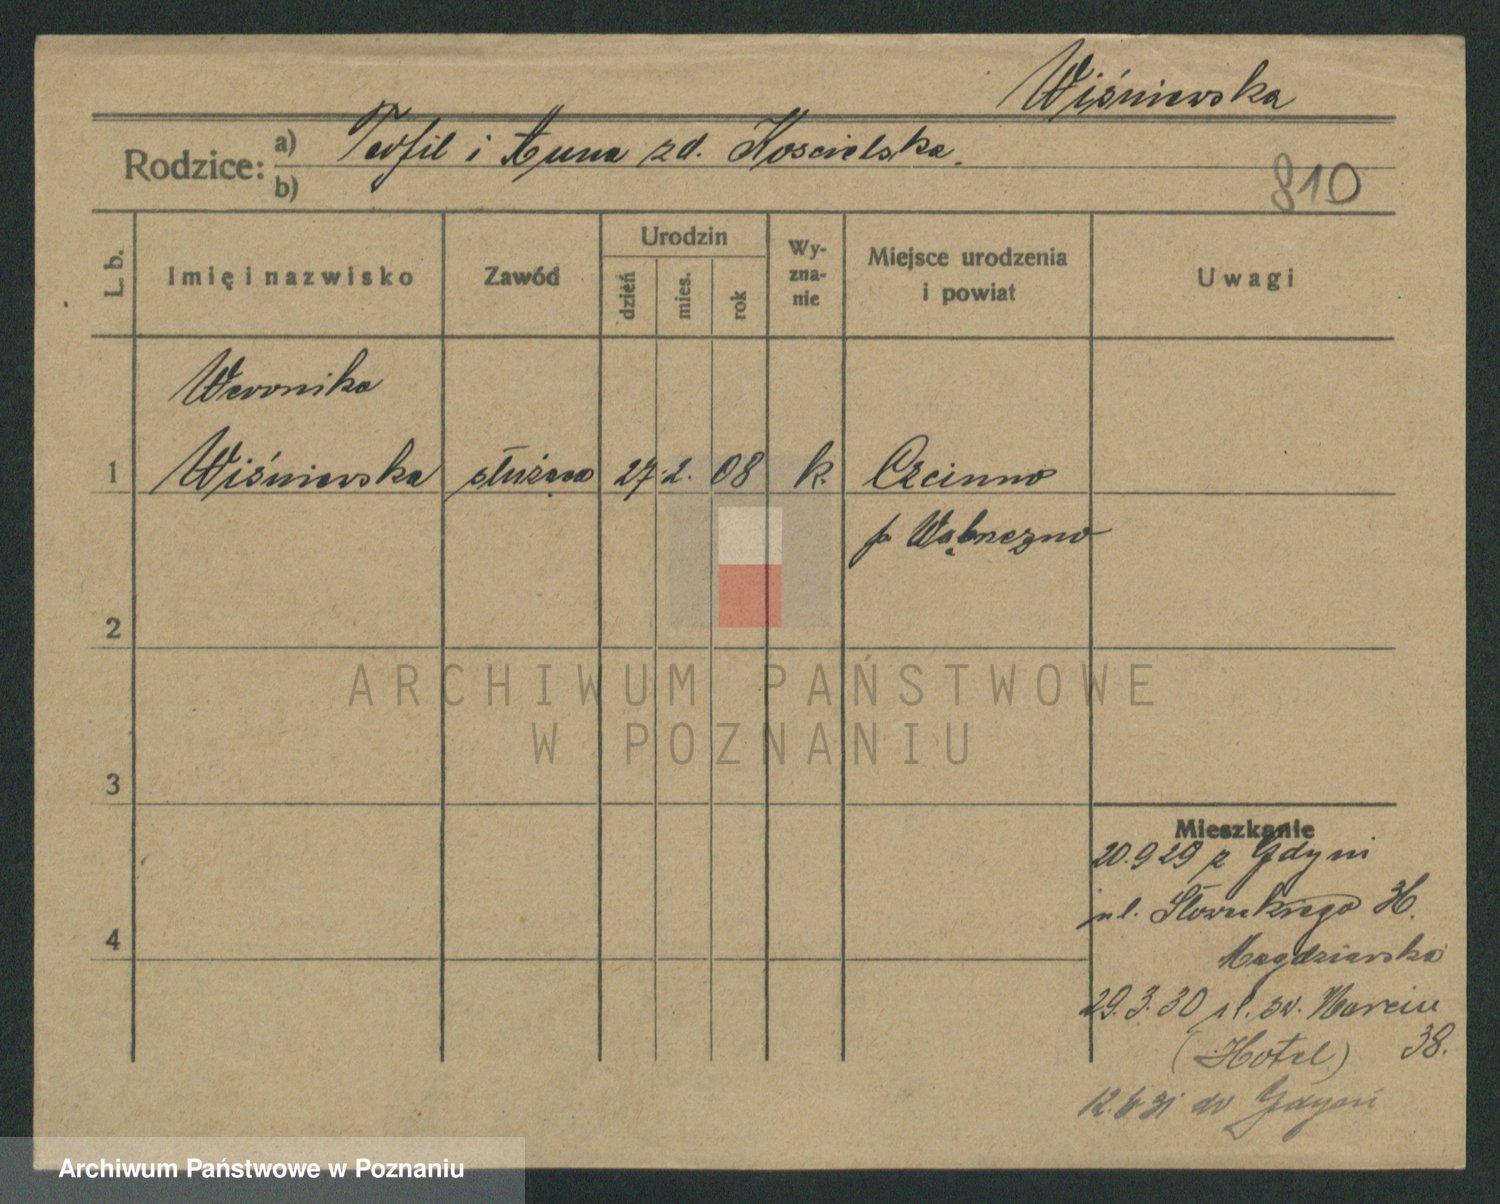 Wiśniewska
Rodzice: a) Teofil i Anna zd. Koscielska.
b)
810
L. b.
Imię i nazwisko
Zawód
Urodzin
dzień
mies.
rok
Wy-
zna-
nie
Miejsce urodzenia
i powiat
Uwagi
Weronika
1 Wiśniewska służąca 27 2. 08 k. Czcinno
p Wąbrzezno
2
ARCHIWUM PAŃSTWOWE
W POZNANIU
3
Mieszkanie
20.9 29 z Gdyni
ul. Słowackiego
4
Magdziarska
29.3.30 ul. św. Marcin
(Hotel) 38.
do Gdyni
Archiwum Państwowe w Poznaniu